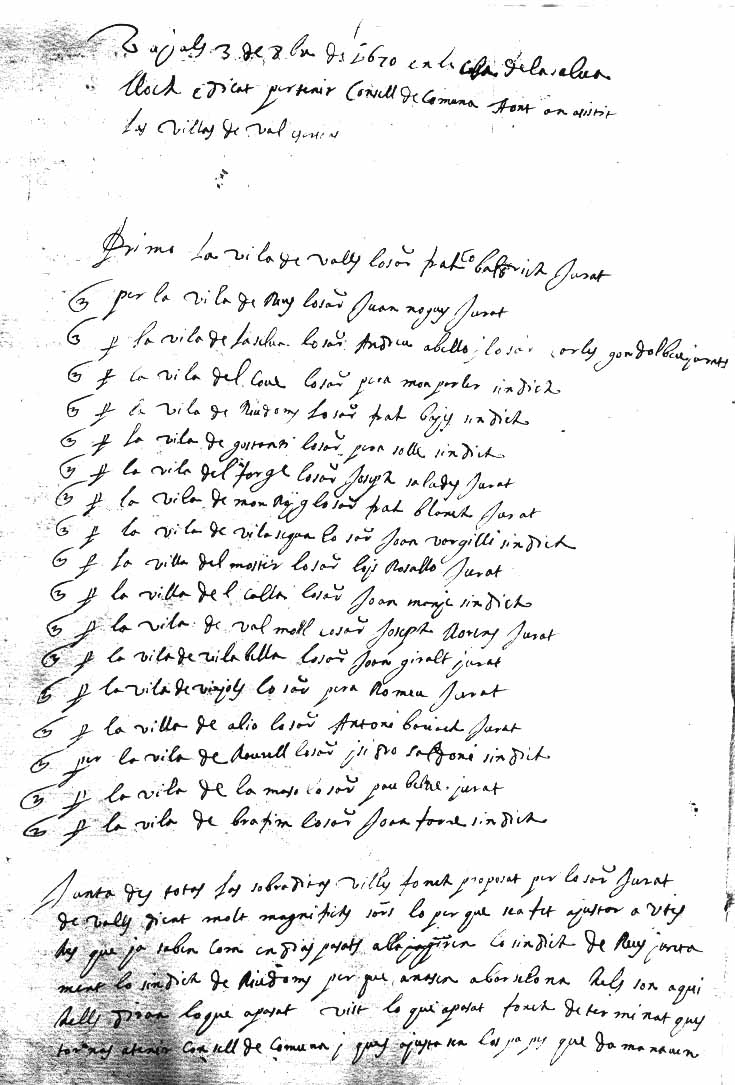 Vuy als 3 de 8bre de 1670 en la casa de la selva
lloch edicat per tenir Consell de Comuna hont an asistit
las villas de val
Primo la vila de valls losor. frat balterich Jurat
per la vila de Reus losor. Juan nogues Jurat
p la vila de la selva losor. Andreu abello y losor Carles gondolbeu jurats
p la vila del Cove losor. pera monporler sindich
p la vila de Riudoms losor. frat sindich
p la vila de losor. pera solle sindich
p la vila del forge losor. Joseph salades Jurat
p la vila de mon Roig losor. frat blanch Jurat
p la vila de vilasequa lo sor. Joan vergilli sindich
p la villa del mostir losor. lois Rosallo Jurat
p la villa del Catlla losor. Joan monje sindich
p la vila de val moll losor. Joseph Rovens Jurat
p la vila de vila bella losor. Joan giralt jurat
p la vila de vinyols lo sor. pera Romeu Jurat
p la villa de alio losor. Antoni Jurat
per la vila de Rourell losor. jsidro saldoni sindich
p la vila de la maso losor. pau jurat
p la vila de brafim losor. Joan forne sindich
Junta des totas las sobraditas villes fonch proposat per losor. Jurat
de valls dient molt magnifichs sors. lo per que sea fet ajustar a vtes
es que ja saben com en dias pasats lo sindich de Reus junta
ment lo sindich de Riudoms per que anasen a borselona hels son aqui
hells diran loque apasat vist lo que apasat fonch determinat ques
tornas atenir Consell de Comuna j ques ajusta sen los papes que demanaven